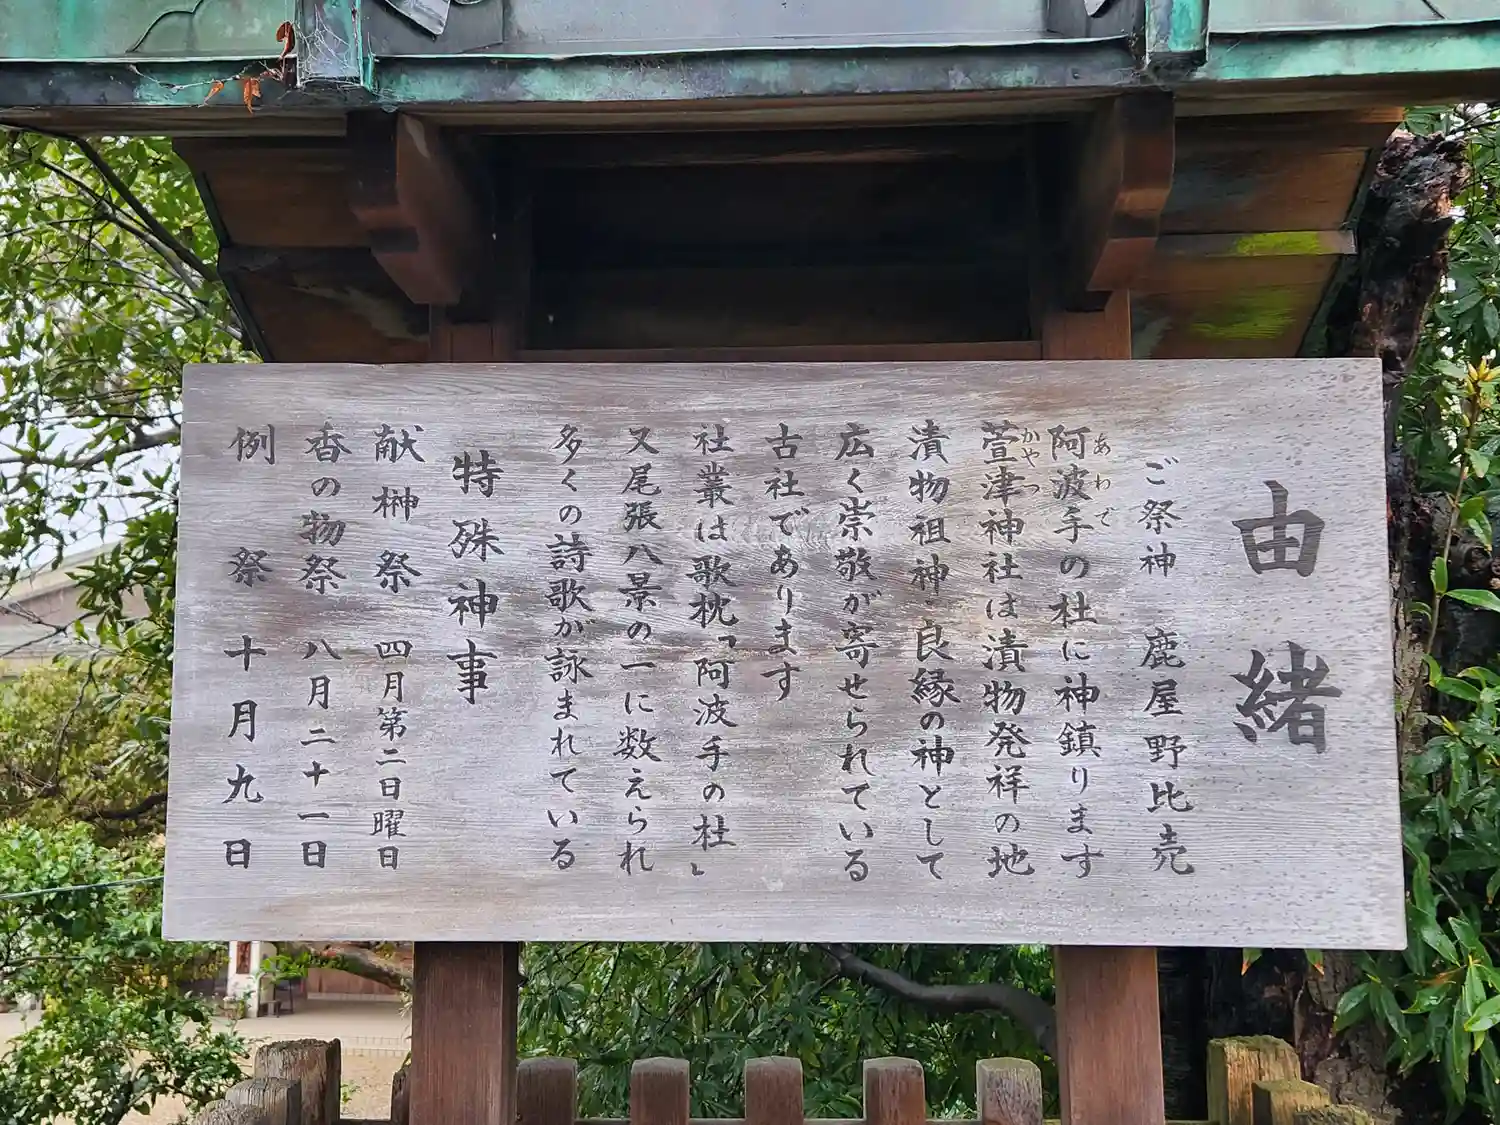 由緒
ご祭神 鹿屋野比売
阿波手の杜に神鎮ります
あわで
萱津神社は漬物発祥の地
かやつ
漬物祖神・良縁の神として
広く崇敬が寄せられている
古社であります
社叢は歌枕「阿波手の杜」
又尾張八景の一に数えられ
多くの詩歌が詠まれている
特殊神事
献榊祭 四月第二日曜日
香の物祭 八月二十一日
例祭 十月九日